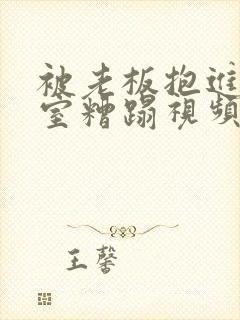 被老板抱进
室糟蹋視頻
王馨